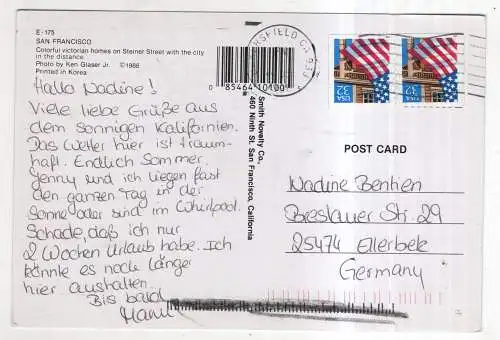 E-175
SAN FRANCISCO
Colorful victorian homes on Steiner Street with the city
in the distance.
Photo by Ken Glaser Jr. ©1986
Printed in Korea
Hallo Nadine!
Viele liebe Grüße aus
dem sonnigen Kalifornien.
Das Wetter hier ist traum-
haft. Endlich Sommer.
Jenny und ich liegen fast
den ganzen Tag in der
Sonne oder sind im Whirlpool.
Schade, daß ich nur
2 Wochen Urlaub habe. Ich
könnte es noch länger
hier aushalten.
Bis bald
0 85464 10100
Smith Novelty Co.,
460 Ninth St. San Francisco, California
RSFIELD CA 933
USA 32
USA 32
POST CARD
Nadine Bentien
Breslauer Str. 29
25474 Ellerbek
Germany